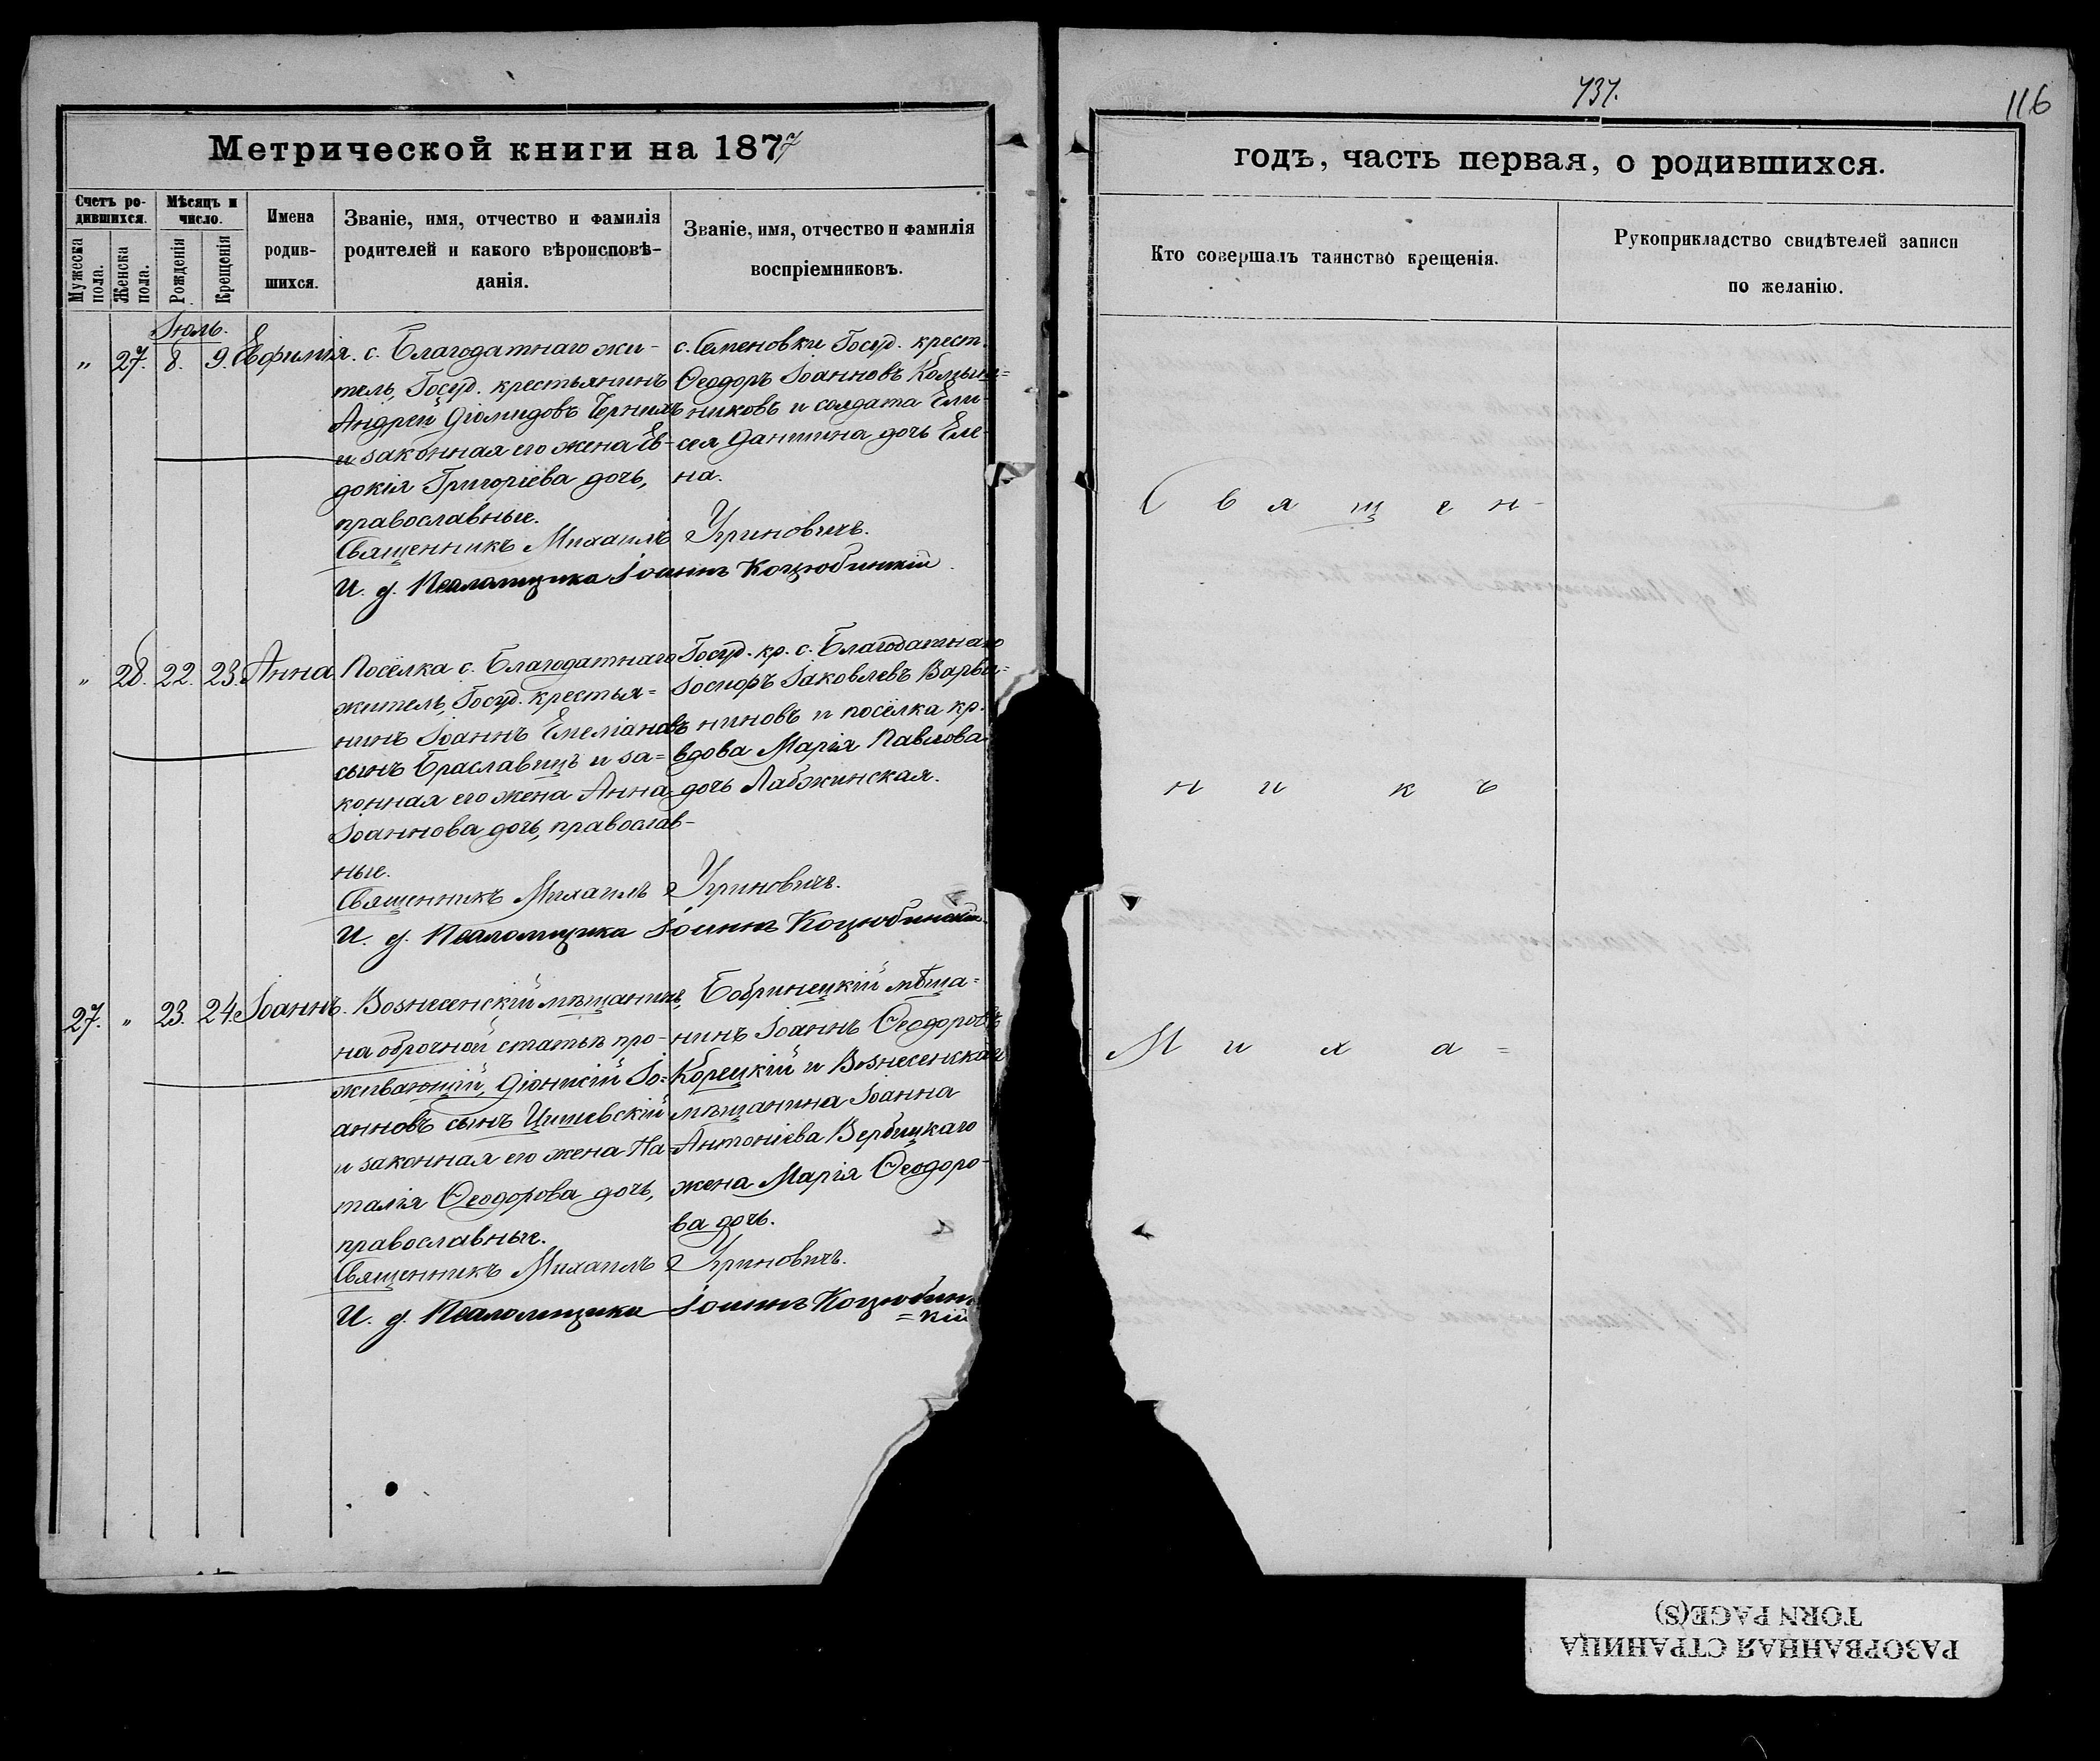 737.
116
Метрической книги на 1877
годъ, часть первая, о родившихся.
Счетъ ро-
дившихся.
Мужеска
пола.
Женска
пола.
Мѣсяцъ и
число.
Рожденія
Крещенія
Имена
родив-
шихся.
Званіе, имя, отчество и фамилія
родителей и какого вѣроисповѣ-
данія.
Званіе, имя, отчество и фамилія
воспріемниковъ.
Кто совершалъ таинство крещенія.
Рукоприкладство свидѣтелей записи
по желанію.
Іюль.
„ 27. 8. 9. Евфимія.
с. Благодатнаго жи-
тель, Госуд. крестьянинъ
Андрей Діомидовъ
и законная его жена Ев-
докія Григоріева дочь,
православные.
с. Семеновки Госуд. крест.
Ѳеодоръ Іоанновъ
никовъ и солдата Ели-
сея Данилина дочь Еле-
на.
Священникъ Михаилъ Угриновичъ.
И. д. Псаломщика Іоаннъ Коцюбинскій.
„ 28. 22. 23. Анна.
Посёлка с. Благодатнаго
житель, Госуд. крестья=
нинъ Іоаннъ Емеліановъ
сынъ Браславецъ и за=
конная его жена Анна
Іоаннова дочь, православ-
ные.
Госуд. кр. с. Благодатнаго
Іосифъ Іаковлевъ Варва=
ниновъ и посёлка кр.
вдова Марія Павлова
дочь Лабжинская.
Священникъ Михаилъ Угриновичъ.
И. д. Псаломщика Іоаннъ Коцюбинскій.
27. „ 23. 24. Іоаннъ.
Вознесенскій мѣщанинъ,
на оброчной статьѣ про-
живающій, Діонисій Іо=
анновъ сынъ Цишевскій
и законная его жена На-
талія Ѳеодорова дочь,
православные.
Бобринецкій мѣща=
нинъ Іоаннъ Ѳеодоровъ
Корецкій и Вознесенскаго
мѣщанина Іоанна
Антоніева Вербицкаго
жена Марія Ѳеодоро-
ва дочь.
Священникъ Михаилъ Угриновичъ.
И. д. Псаломщика Іоаннъ Коцюбинс
=кій
С в я щ е н -
н и к ъ
М и х а =
РАЗОРВАННАЯ СТРАНИЦА
TORN PAGE(S)